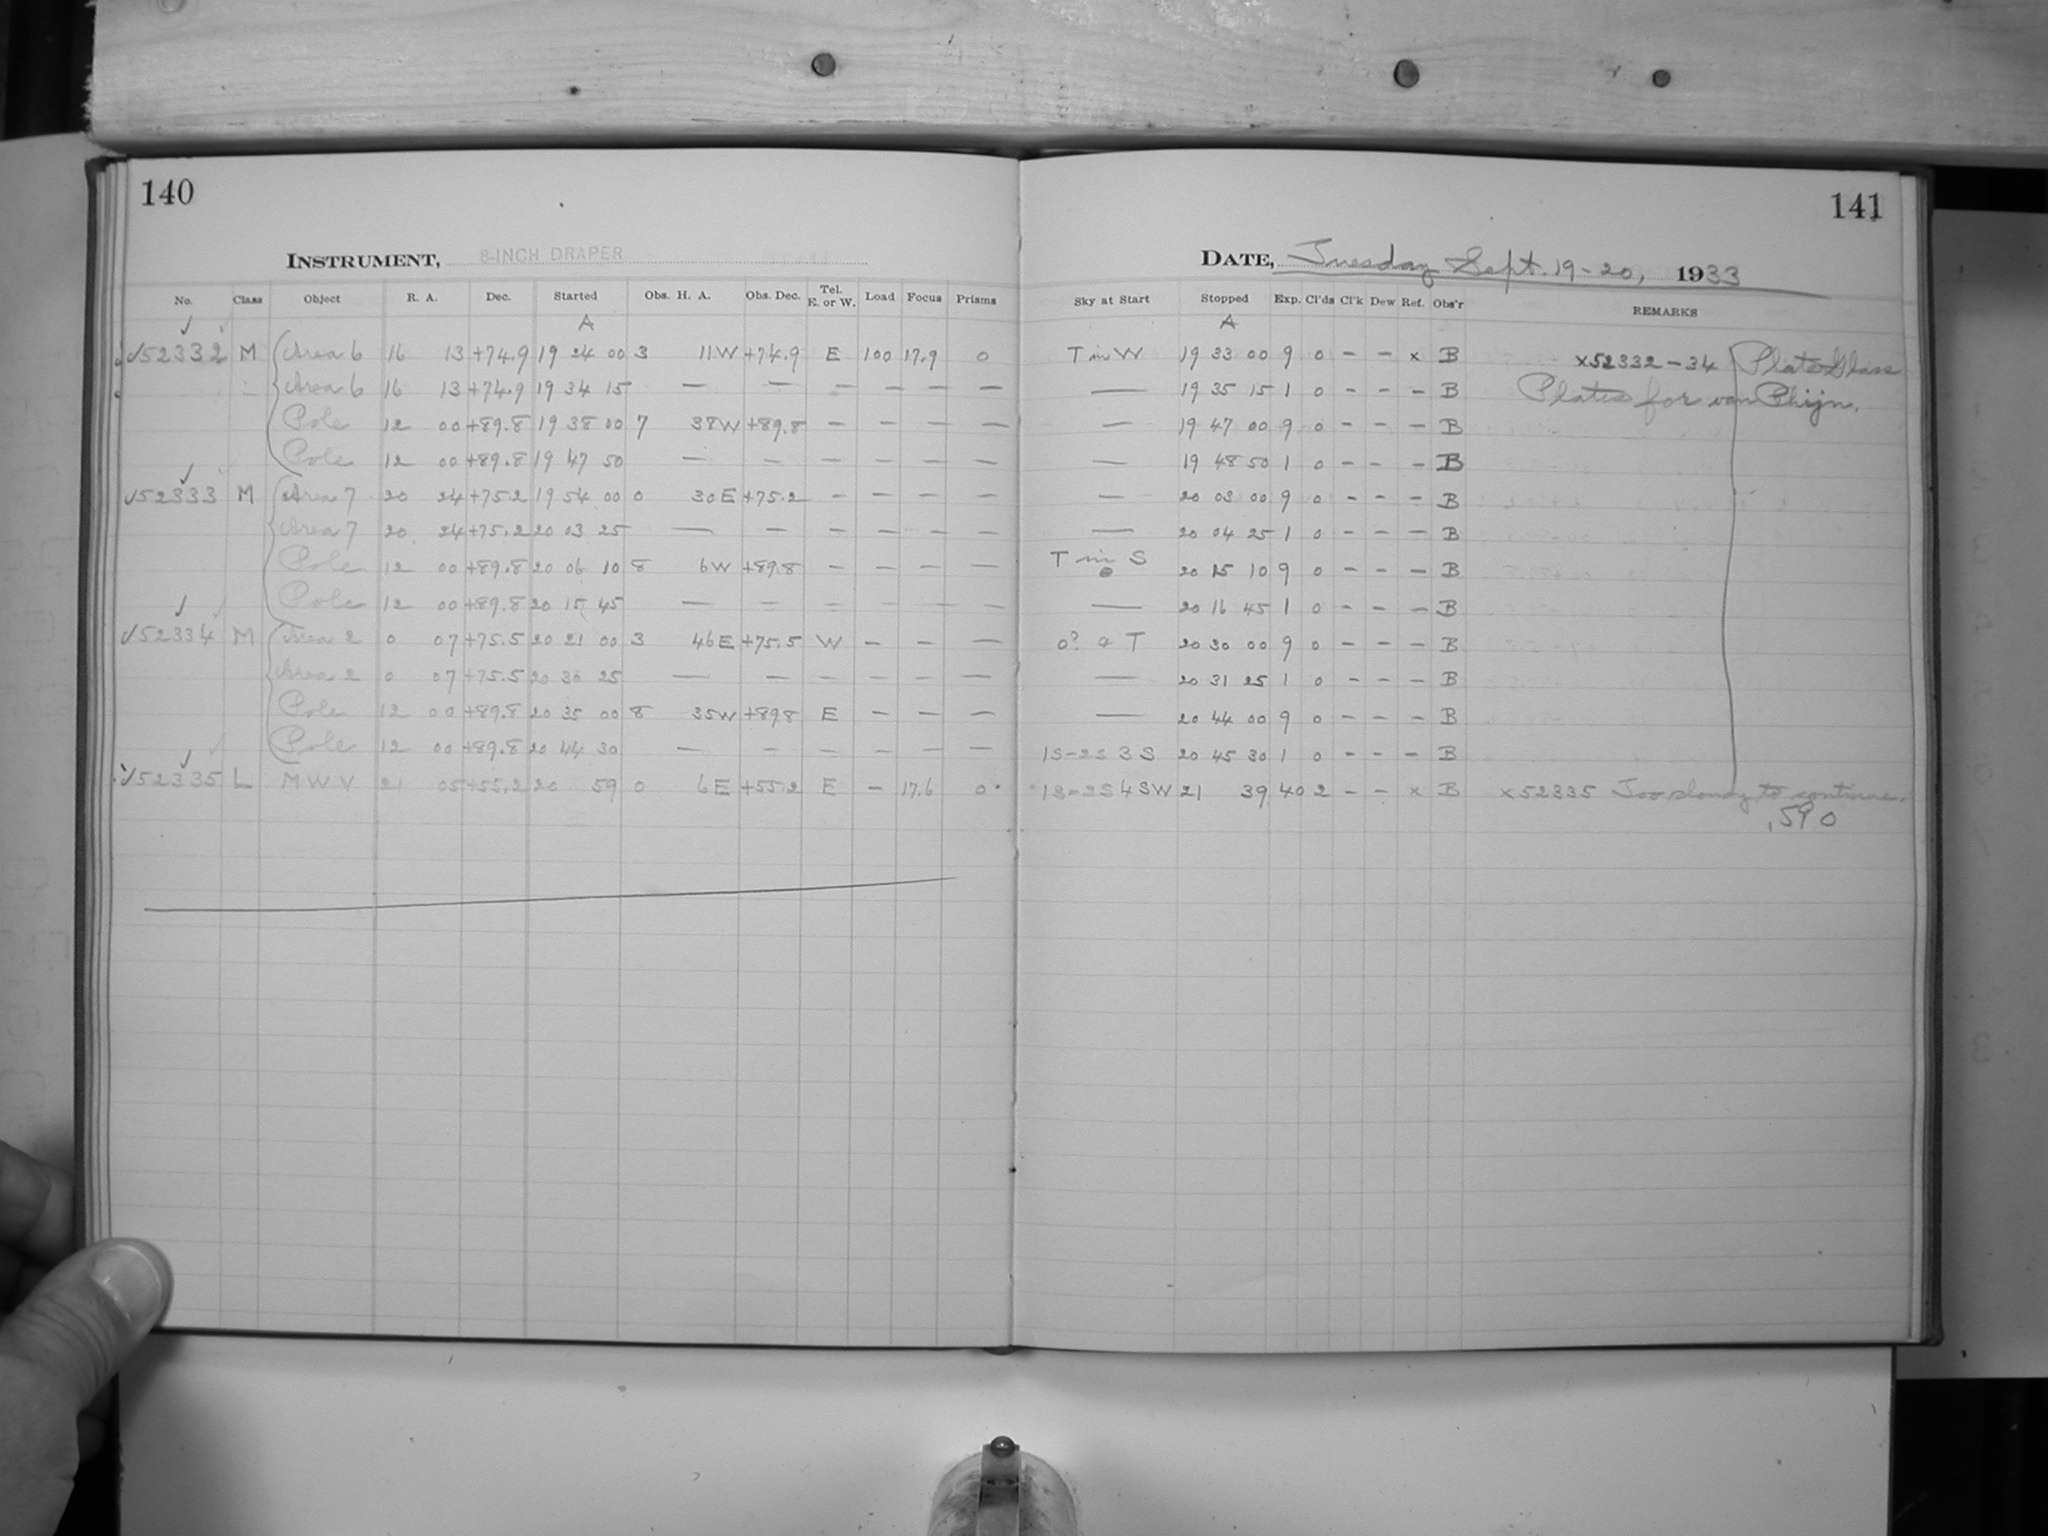 140
INSTRUMENT, 8-INCH DRAPER
No. Class Object R. A. Dec. Started Obs. H. A. Obs. Dec. Tel. E. or W. Load Focus Prisms
A
52332 M Area 6 16 13 +74.9 19 24 00 3 11W +74.9 E 100 17.9 0
Area 6 16 13 +74.9 19 34 15 — — — — — —
Pole 12 00 +89.8 19 38 00 7 38W +89.8 — — — —
Pole 12 00 +89.8 19 47 50 — — — — — —
52333 M Area 7 20 24 +75.2 19 54 00 0 30E +75.2 — — — —
Area 7 20 24 +75.2 20 03 25 — — — — — —
Pole 12 00 +89.8 20 06 10 8 6W +89.8 — — — —
Pole 12 00 +89.8 20 15 45 — — — — — —
52334 M Area 2 0 07 +75.5 20 21 00 3 46E +75.5 W — — —
Area 2 0 07 +75.5 20 30 25 — — — — — —
Pole 12 00 +89.8 20 35 00 8 35W +89.8 E — — —
Pole 12 00 +89.8 20 44 30 — — — — — —
52335 L MWV 21 05 +55.2 20 59 0 6E +55.2 E — 17.6 0
141
DATE, Tuesday Sept. 19-20, 1933
Sky at Start Stopped Exp. Cl'ds Cl'k Dew Ref. Obs'r REMARKS
A
T in W 19 33 00 9 0 – – x B x52332-34 Plate Glass
— 19 35 15 1 0 – – – B Plates for van Rhijn.
— 19 47 00 9 0 – – – B
— 19 48 50 1 0 – – – B
— 20 03 00 9 0 – – – B
— 20 04 25 1 0 – – – B
T in S 20 15 10 9 0 – – – B
— 20 16 45 1 0 – – – B
0? a T 20 30 00 9 0 – – – B
— 20 31 25 1 0 – – – B
— 20 44 00 9 0 – – – B
1S-2S 3 S 20 45 30 1 0 – – – B
1S-2S 4 SW 21 39 40 2 – – x B x52335 Too cloudy to continue.
.590